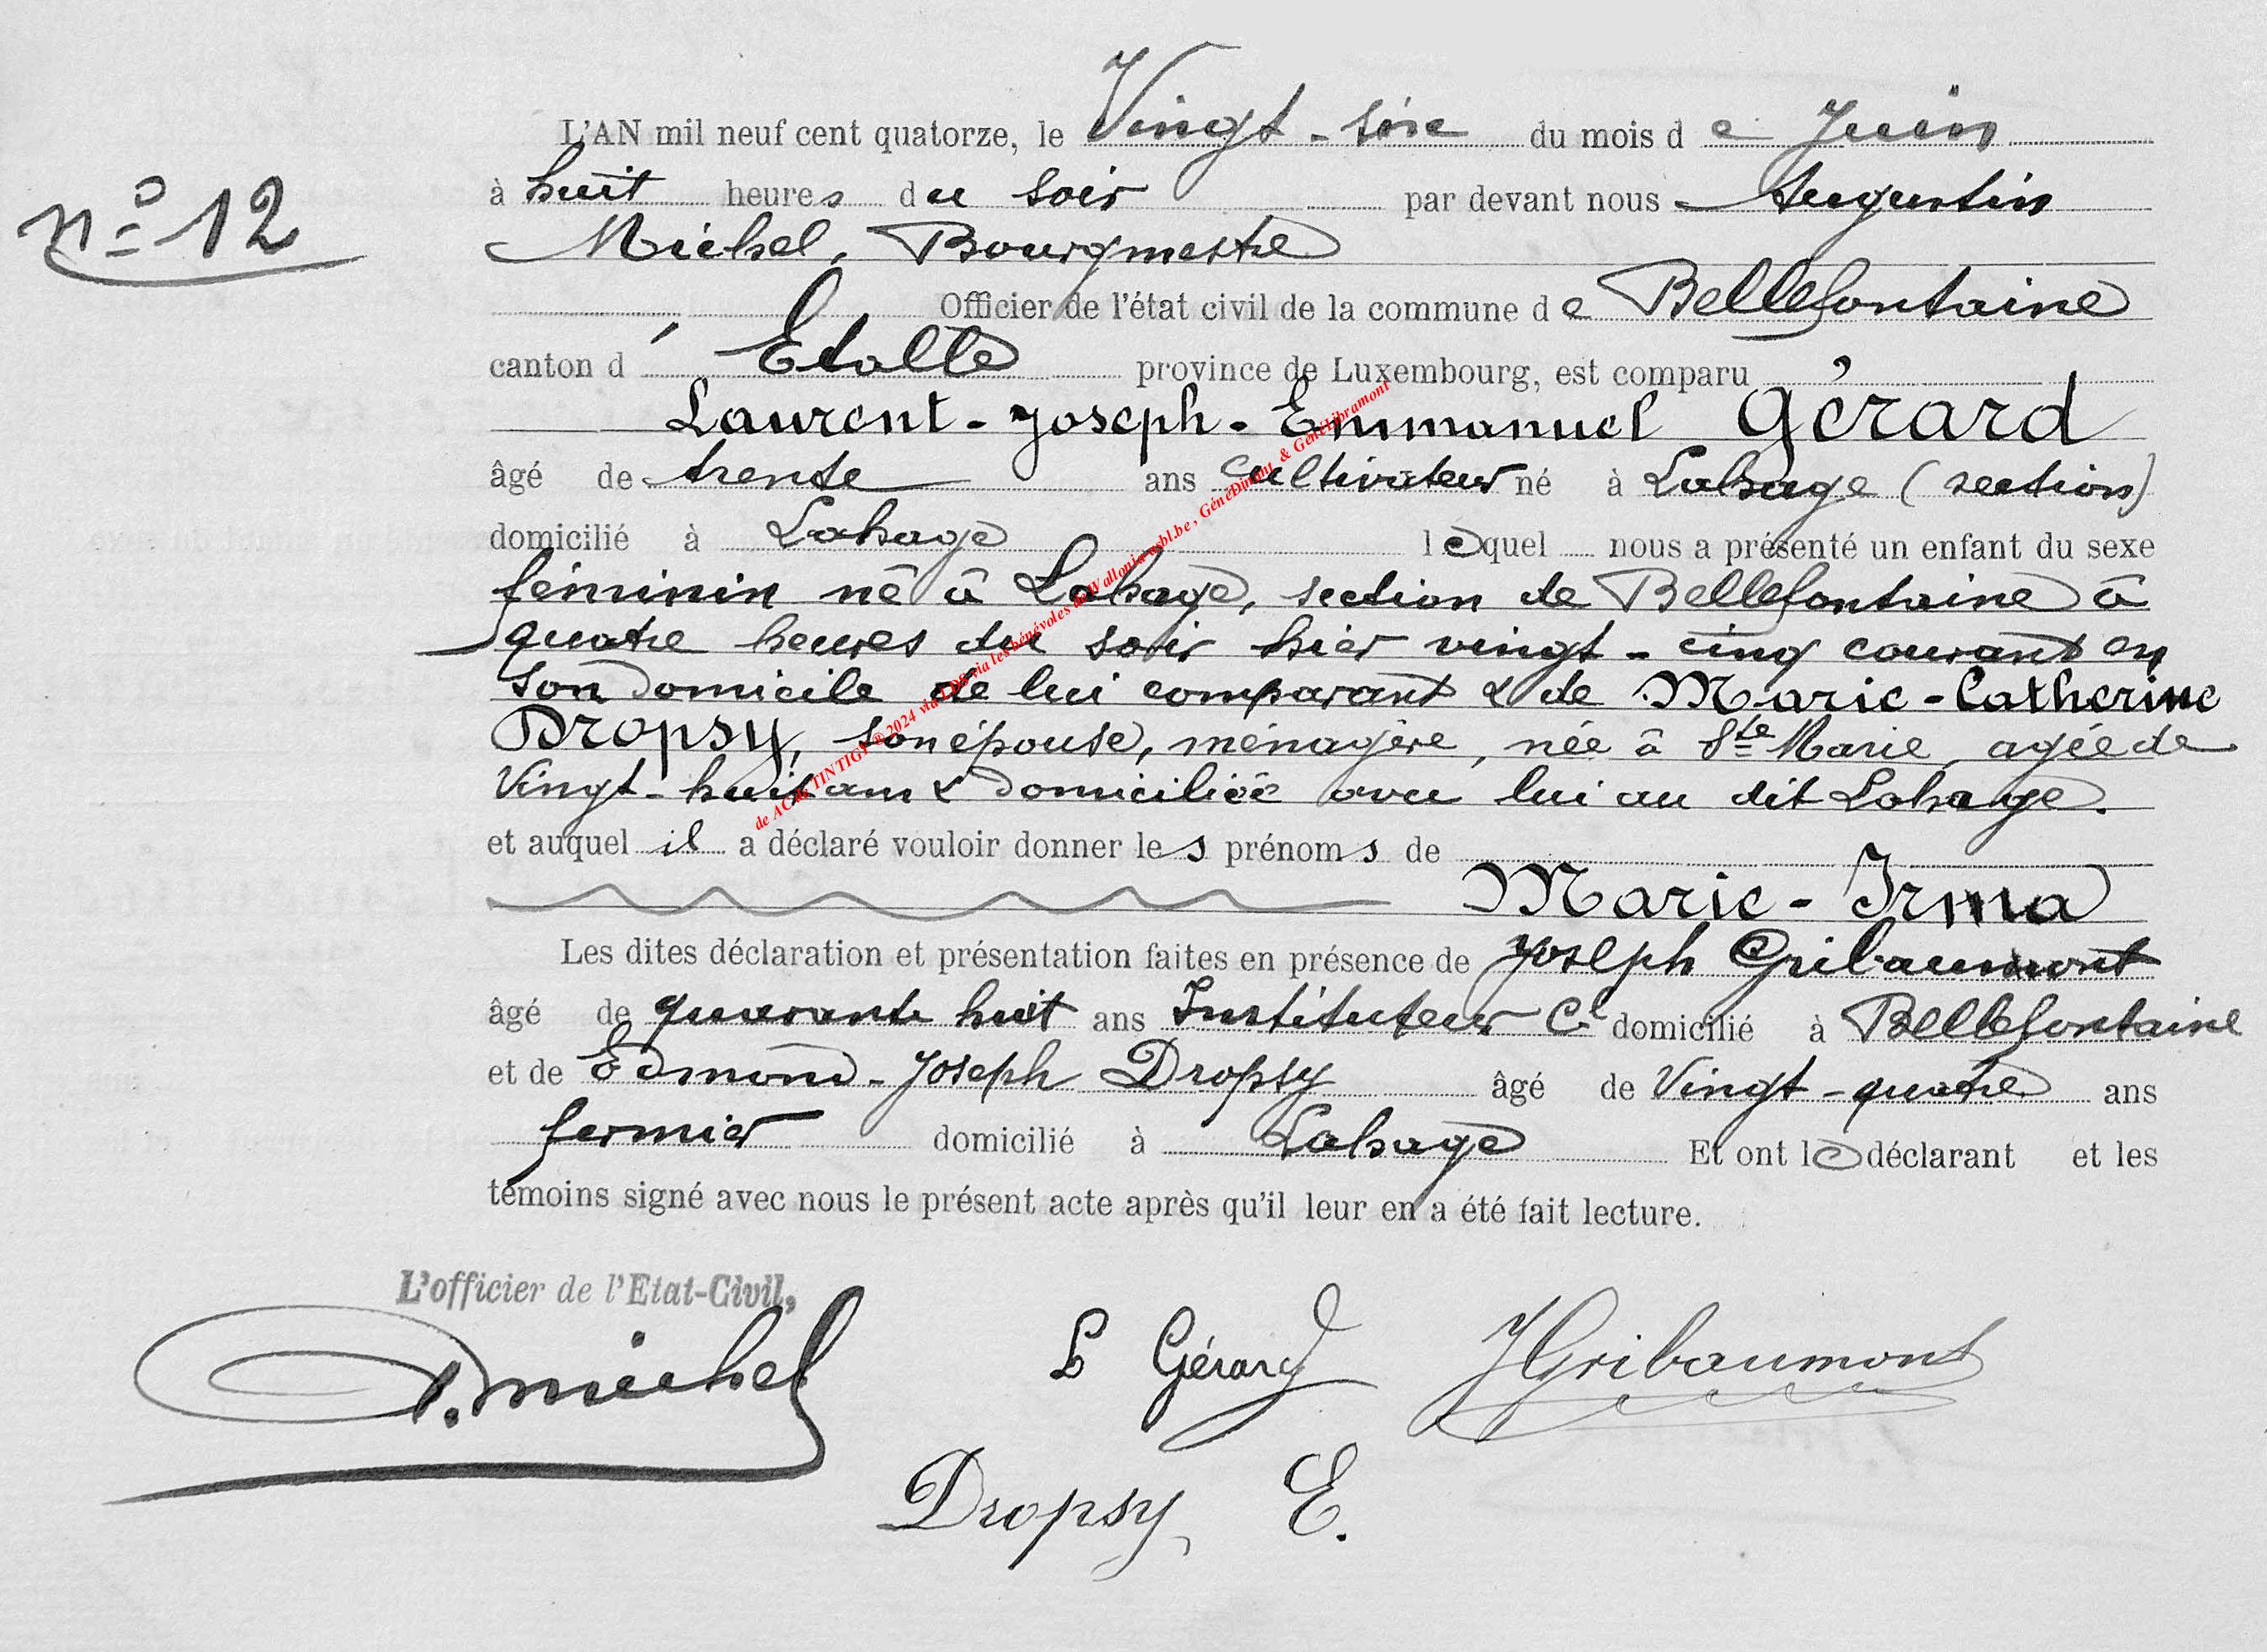 L'AN mil neuf cent quatorze, le Vingt-six du mois de Juin
n° 12
à huit heures du soir par devant nous Augustin
Michel, Bourgmestre
Officier de l'état civil de la commune de Bellefontaine
canton d'Etalle province de Luxembourg, est comparu
Laurent-Joseph-Emmanuel Gérard
âgé de trente ans cultivateur né à Lahage (section)
domicilié à Lahage lequel nous a présenté un enfant du sexe
féminin né à Lahage, section de Bellefontaine à
quatre heures du soir hier vingt-cinq courant en
son domicile de lui comparant & de Marie-Catherine
Dropsy, son épouse, ménagère, née à Ste Marie, agée de
Vingt-huit ans & domiciliée avec lui au dit Lahage.
et auquel il a déclaré vouloir donner les prénoms de
Marie-Irma
Les dites déclaration et présentation faites en présence de Joseph Gribaumont
âgé de quarante huit ans Instituteur Cl domicilié à Bellefontaine
et de Edmond-Joseph Dropsy âgé de Vingt-quatre ans
fermier domicilié à Lahage Et ont le déclarant et les
témoins signé avec nous le présent acte après qu'il leur en a été fait lecture.
L'officier de l'Etat-Civil,
A. Michel L Gérard JGribaumont
Dropsy E.
de AC de TINTIGY ® 2024 via LDS via les bénévoles de Wallonia asbl.be , GénéDinant & GénéLibramont